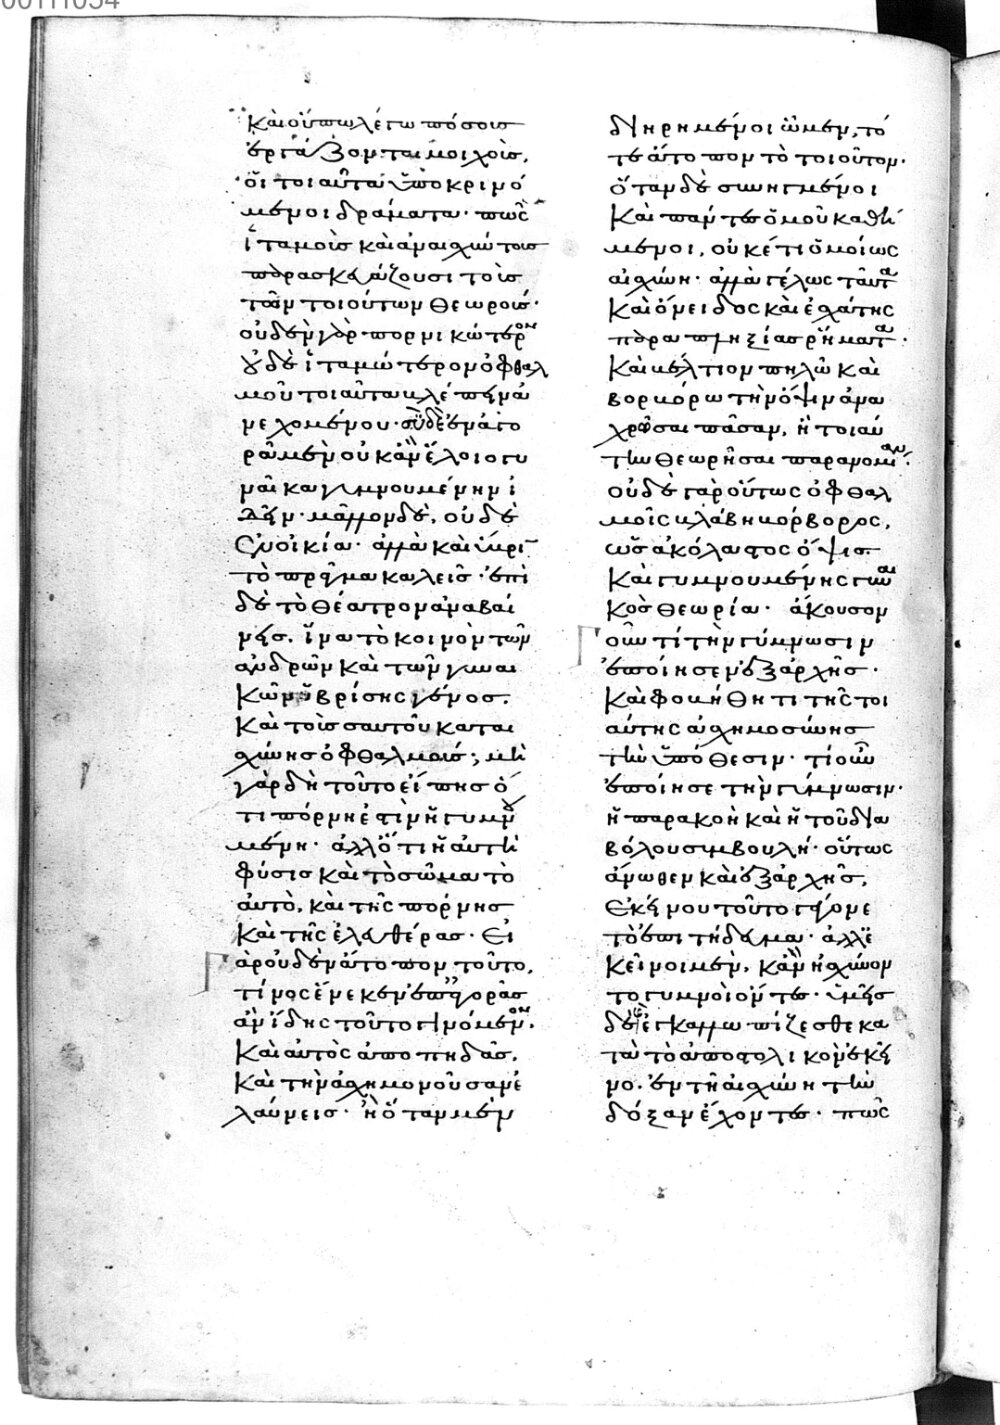 00111054
Καὶ οὔπω λέγω πόσοις
ἐργάζονται μοιχοὺς,
οἱ τοιαῦτα ὑποκρινό
μενοι δράματα· πῶς
ἰταμοὺς καὶ ἀναισχύντους
παρασκευάζουσι τοὺς
τῶν τοιούτων θεωρούς·
οὐδὲν γὰρ πορνικώτερον
οὐδὲ ἰταμώτερον ὀφθαλ
μοῦ τοιαῦτα βλέπειν ἀ
νεχομένου· σὺ δὲ ἐν ἀγο
ρᾷ μὲν οὐκ ἂν ἕλοιο γυ
ναῖκα γυμνουμένην ἰ
δεῖν· μᾶλλον δὲ, οὐδὲ
ἐν οἰκία· ἀλλὰ καὶ ὕβριν
τὸ πρᾶγμα καλεῖς· ἐπὶ
δὲ τὸ θέατρον ἀναβαί
νεις, ἵνα τὸ κοινὸν τῶν
ἀνδρῶν καὶ τῶν γυναι
κῶν ὑβρίσης γένος,
καὶ τοὺς σαυτοῦ καται
σχύνης ὀφθαλμούς; μὴ
γὰρ δὴ τοῦτο εἴπης ὅ
τι πόρνη ἐστὶν ἡ γυμνου
μένη· ἀλλ' ὅτι ἡ αὐτὴ
φύσις καὶ τὸ σῶμα τὸ
αὐτὸ, καὶ τῆς πόρνης
καὶ τῆς ἐλευθέρας· Εἰ
γὰρ οὐδὲν ἄτοπον τοῦτο,
τίνος ἕνεκεν ἐπ' ἀγορᾶς
ἂν ἴδης τοῦτο γινόμενον,
καὶ αὐτὸς ἀποπηδᾶς,
καὶ τὴν ἀσχημονοῦσαν ἐ
λαύνεις· ἢ ὅταν μὲν
διηρημένοι ὦμεν, τό
τε ἄτοπον τὸ τοιοῦτον·
ὅταν δὲ συνηγμένοι
καὶ πάντες ὁμοῦ καθή
μενοι, οὐκέτι ὁμοίως
αἰσχύνη· ἀλλὰ γέλως ταῦτα
καὶ ὄνειδος καὶ ἐσχάτης
παραπληξίας ῥήματα·
καὶ βέλτιον πηλῶ καὶ
βορβόρω τὴν ὄψιν ἀνα
χρῶσαι πᾶσαν, ἢ τοιαύ
την θεωρῆσαι παρανομίαν·
οὐδὲ γὰρ οὕτως ὀφθαλ
μοῖς βλάβη βόρβορος,
ὡς ἀκόλαστος ὄψις
καὶ γυμνουμένης γυναι
κὸς θεωρία· ἄκουσον
γοῦν τί τὴν γύμνωσιν
ἐποίησεν ἐξ ἀρχῆς·
καὶ φοβήθητι τῆς τοι
αύτης ἀσχημοσύνης
τὴν ὑπόθεσιν· τί οὖν
ἐποίησε τὴν γύμνωσιν·
ἡ παρακοὴ καὶ ἡ τοῦ δια
βόλου συμβουλή· οὕτως
ἄνωθεν καὶ ἐξ ἀρχῆς,
ἐκείνου τοῦτο γέγονε
τὸ ἐπιτήδευμα· ἀλλ' ἐ
κεῖνοι μὲν, κἂν ἠσχύνον
το γυμνοὶ ὄντες· ὑμεῖς
δὲ ἐγκαλλωπίζεσθε κα
τὰ τὸ ἀποστολικὸν ἐκεῖ
νο· ἐν τῆ αἰσχύνη τὴν
δόξαν ἔχοντες· πῶς